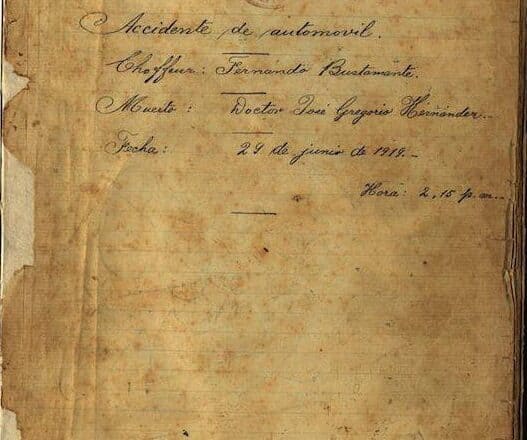 Accidente de automovil.
Choffeur: Fernando Bustamante.
Muerto: Doctor José Gregorio Hernández.
Fecha: 29 de junio de 1919.
Hora: 2,15 p.m.